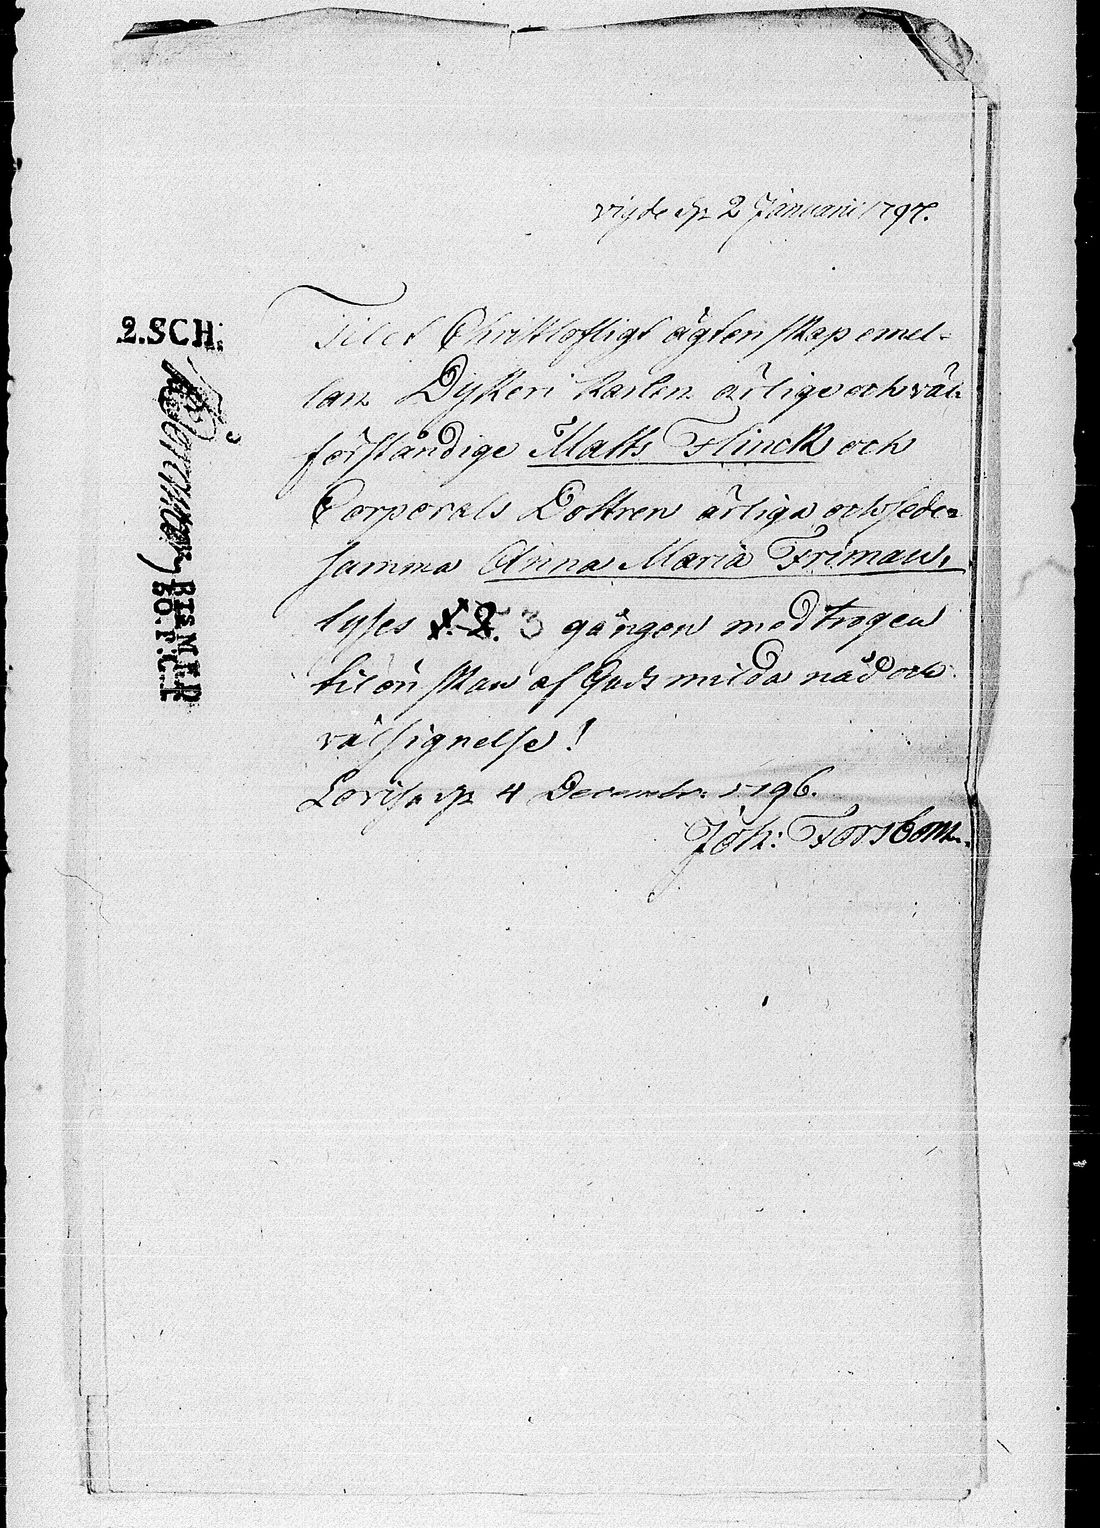 vigde d. 2 Januari 1797.
Til et Christlofligt ägtenskap emel-
lan Dykeri Karlen ärlige och väl-
förståndige Matts Flinck och
Corporals Dottren ärliga och sede-
samma Anna Maria Friman,
lyses 1. 2. 3 gången med trogen
til önskan af Guds milda nåd och
välsignelse!
Lovisa d. 4 December 1796.
Joh: Forsbom.
2.SCH: